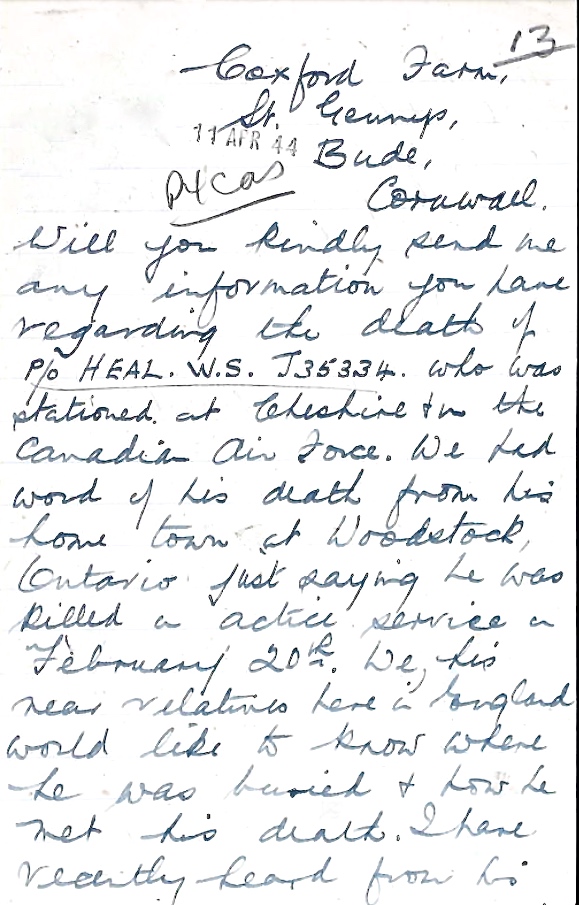 13
Coxford Farm,
St. Gennys,
11 APR 44
Bude,
P4 Cas
Cornwall.
Will you kindly send me
any information you have
regarding the death of
P/o HEAL. W.S. J35334. who was
stationed at Cheshire & in the
Canadian Air Force. We had
word of his death from his
home town at Woodstock,
Ontario just saying he was
killed on active service on
February 20th. We, his
near relatives here in England
would like to know where
he was buried & how he
met his death. I have
recently heard from his